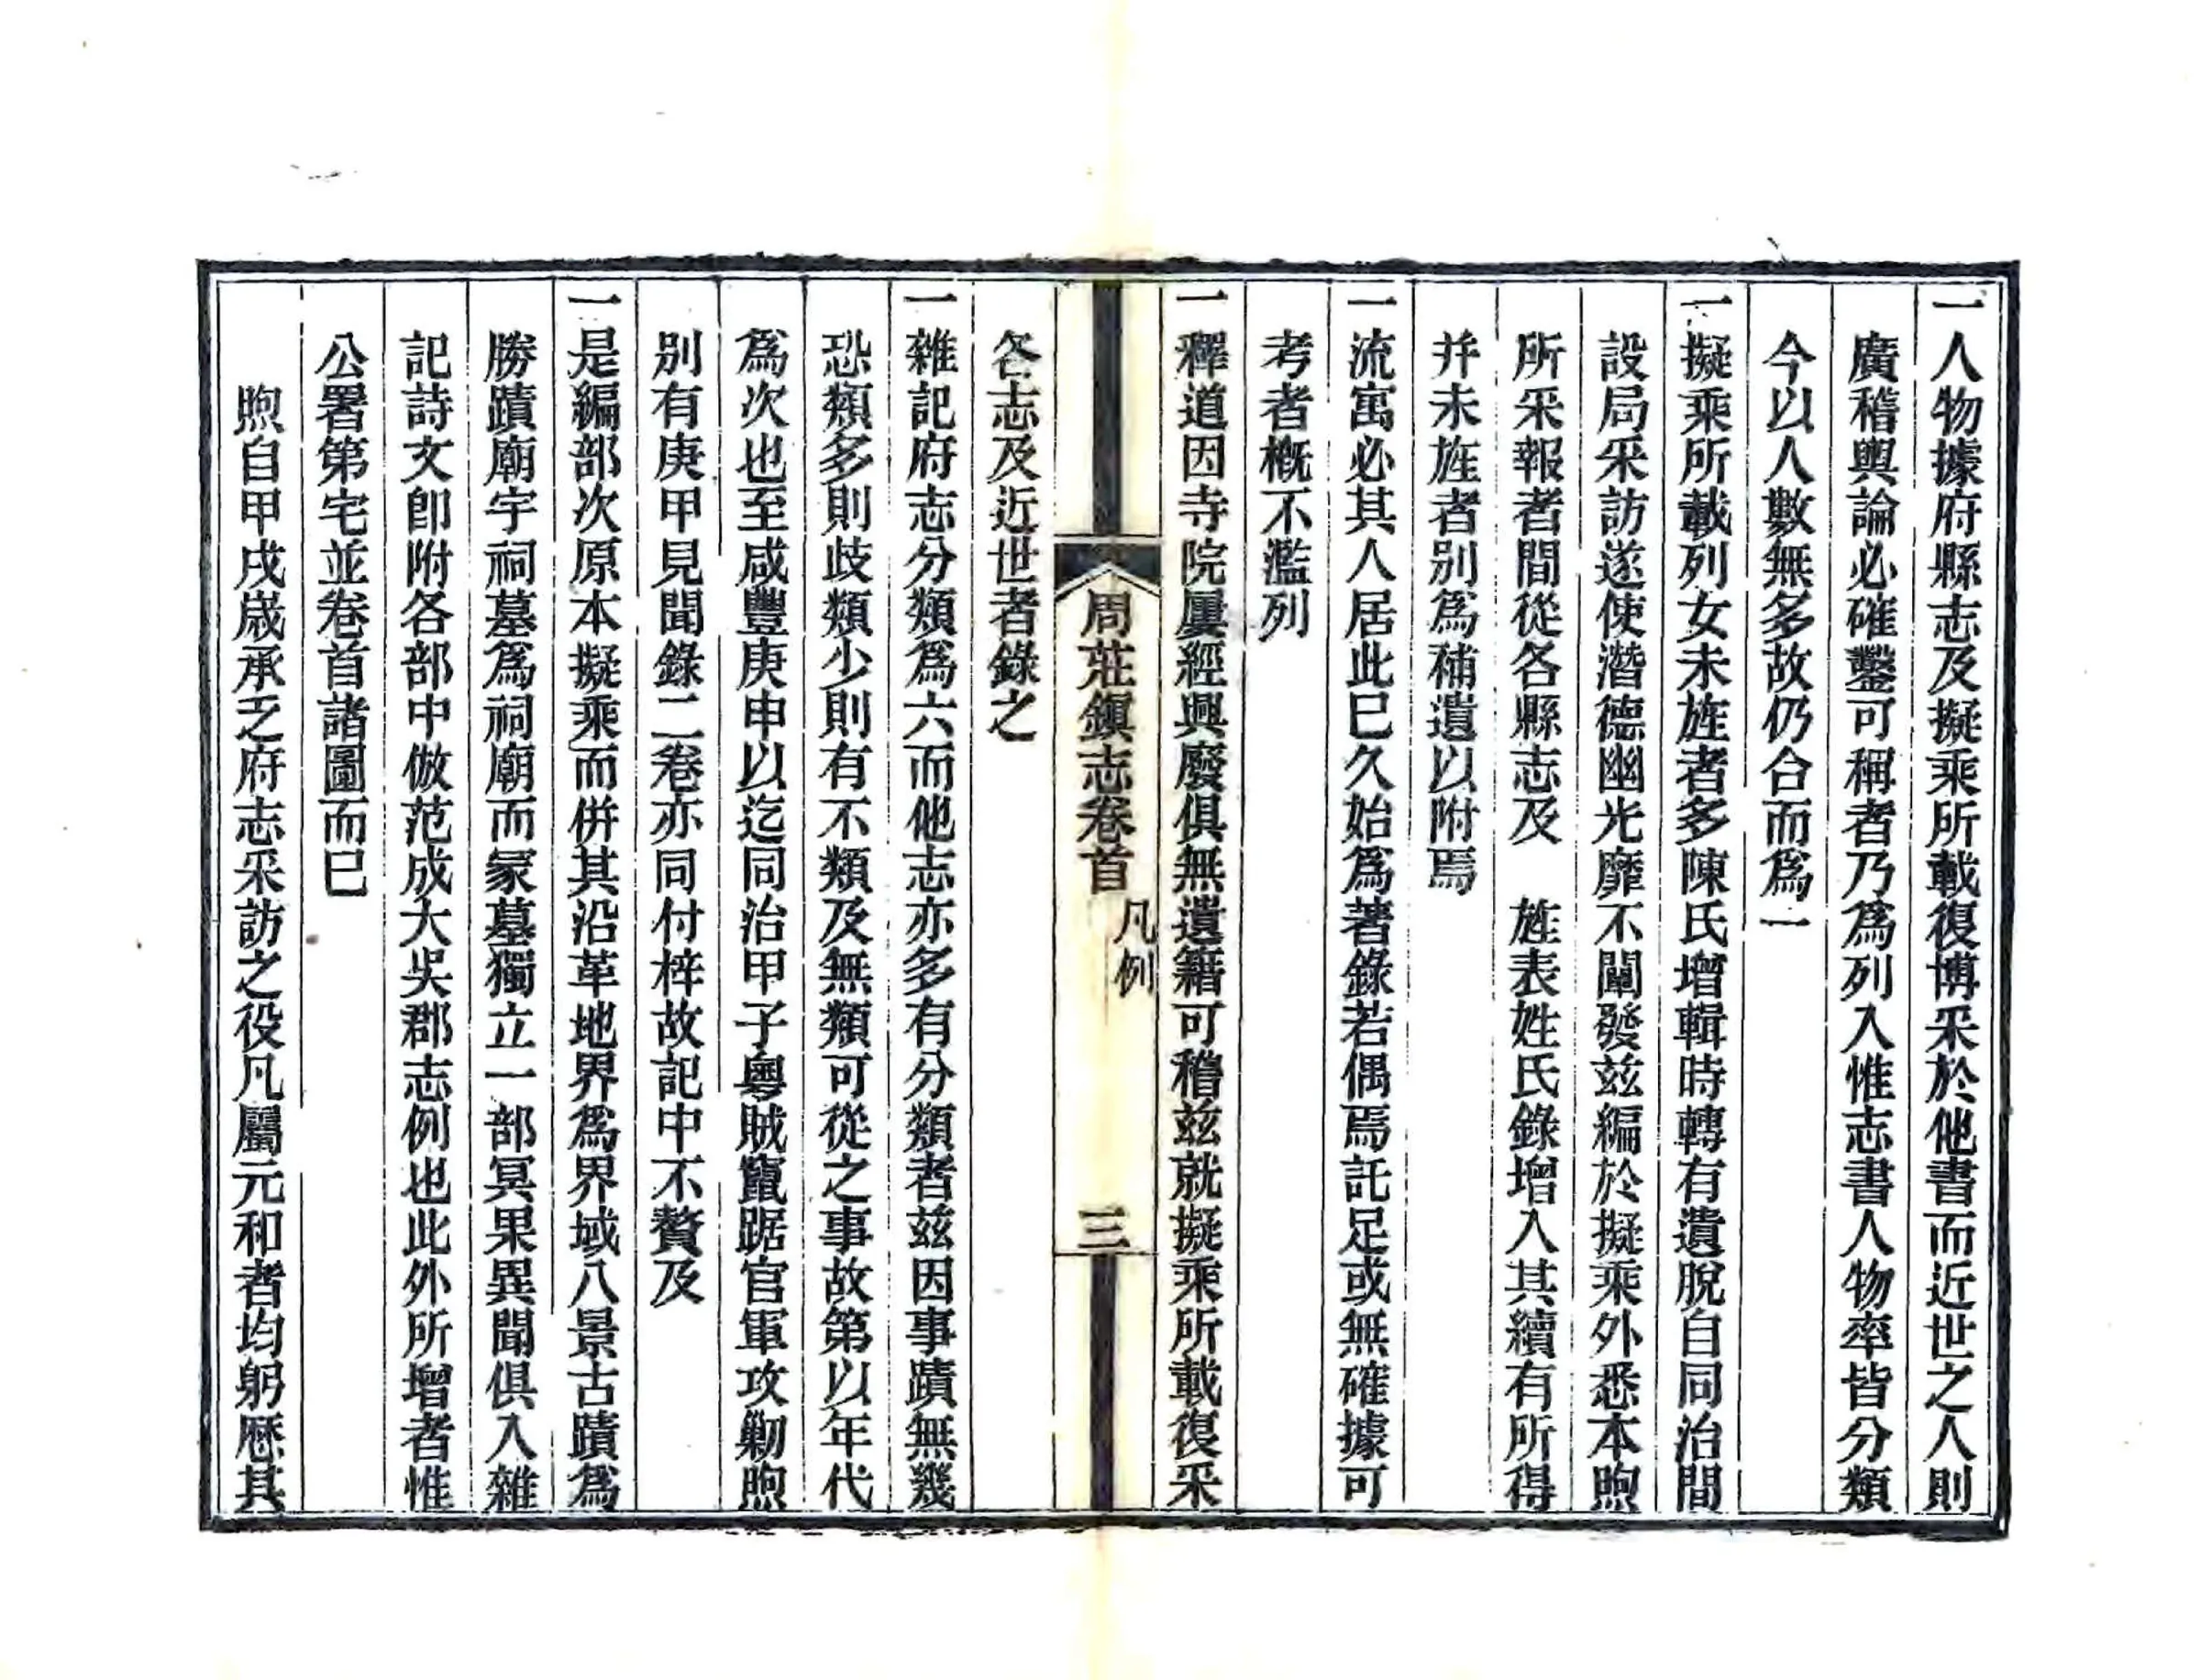 一人物據府縣志及擬乘所載復博采於他書而近世之人則
廣稽輿論必確鑿可稱者乃爲列入惟志書人物率皆分類
今以人數無多故仍合而爲一
一擬乘所載列女未旌者多陳氏增輯時轉有遺脫自同治間
設局采訪遂使潛德幽光靡不闡發兹編於擬乘外悉本煦
所采報者間從各縣志及　旌表姓氏錄增入其續有所得
并未旌者别爲補遺以附焉
一流寓必其人居此已久始爲著錄若偶焉託足或無確據可
考者槪不濫列
一釋道因寺院屢經興廢俱無遺籍可稽兹就擬乘所載復采
各志及近世者錄之
周莊鎭志卷首　凡例　三
一雜記府志分類爲六而他志亦多有分類者兹因事蹟無幾
恐類多則歧類少則有不類及無類可從之事故第以年代
爲次也至咸豐庚申以迄同治甲子粵賊竄踞官軍攻勦煦
别有庚甲見聞錄二卷亦同付梓故記中不贅及
一是編部次原本擬乘而併其沿革地界爲界域八景古蹟爲
勝蹟廟宇祠墓爲祠廟而冢墓獨立一部冥果異聞俱入雜
記詩文卽附各部中倣范成大吳郡志例也此外所增者惟
公署第宅並卷首諸圖而已
煦自甲戌歲承乏府志采訪之役凡屬元和者均躬歷其